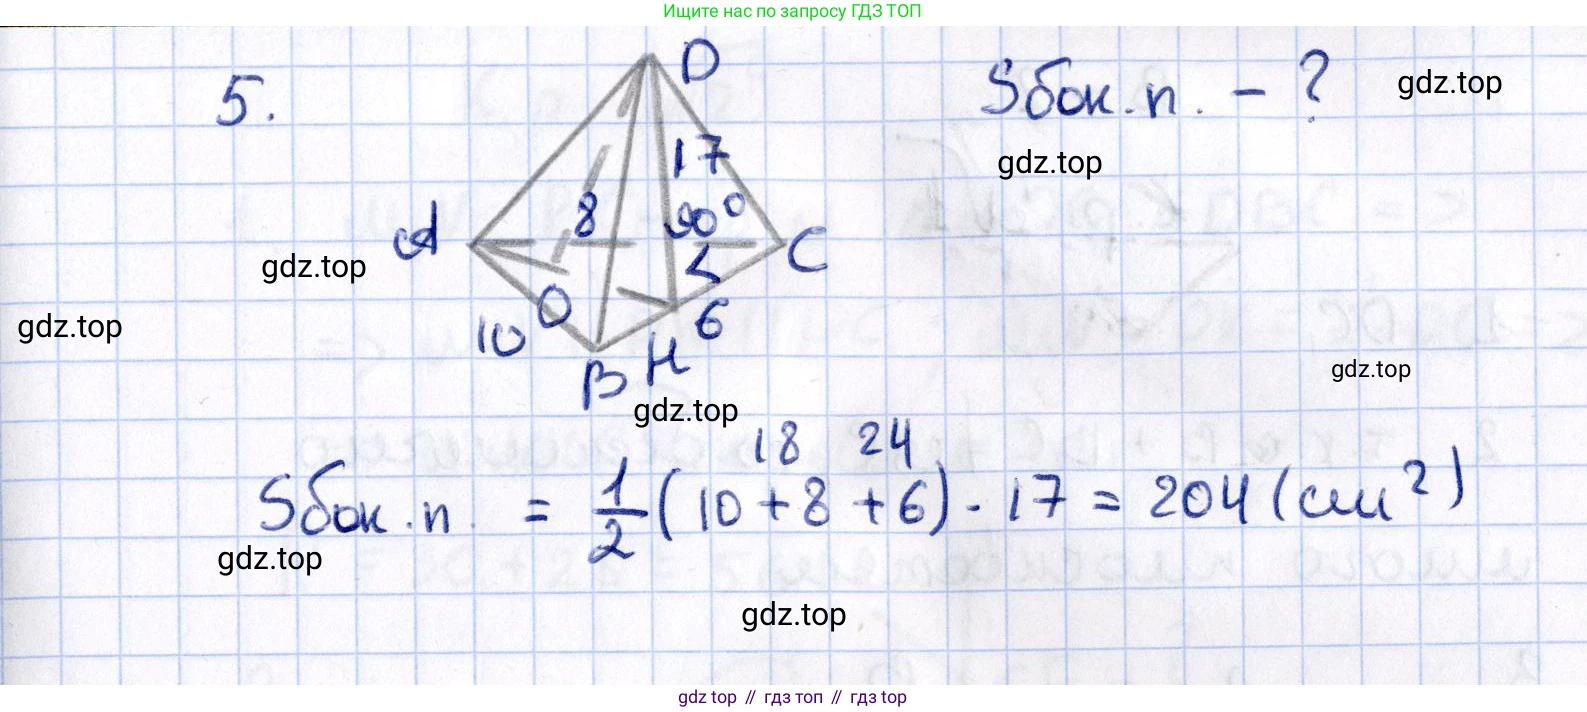 Ищите нас по запросу ГДЗ ТОП
5.
D
Sбок.п. - ?
gdz.top
17
gdz.top
8
90°
A
C
gdz.top
5
O
6
gdz.top
10
H
B
gdz.top
gdz.top
18 24
Sбок.п. = 1/2 (10 + 8 + 6) · 17 = 204 (см²)
gdz.top
gdz.top
gdz.top // гдз топ // gdz top